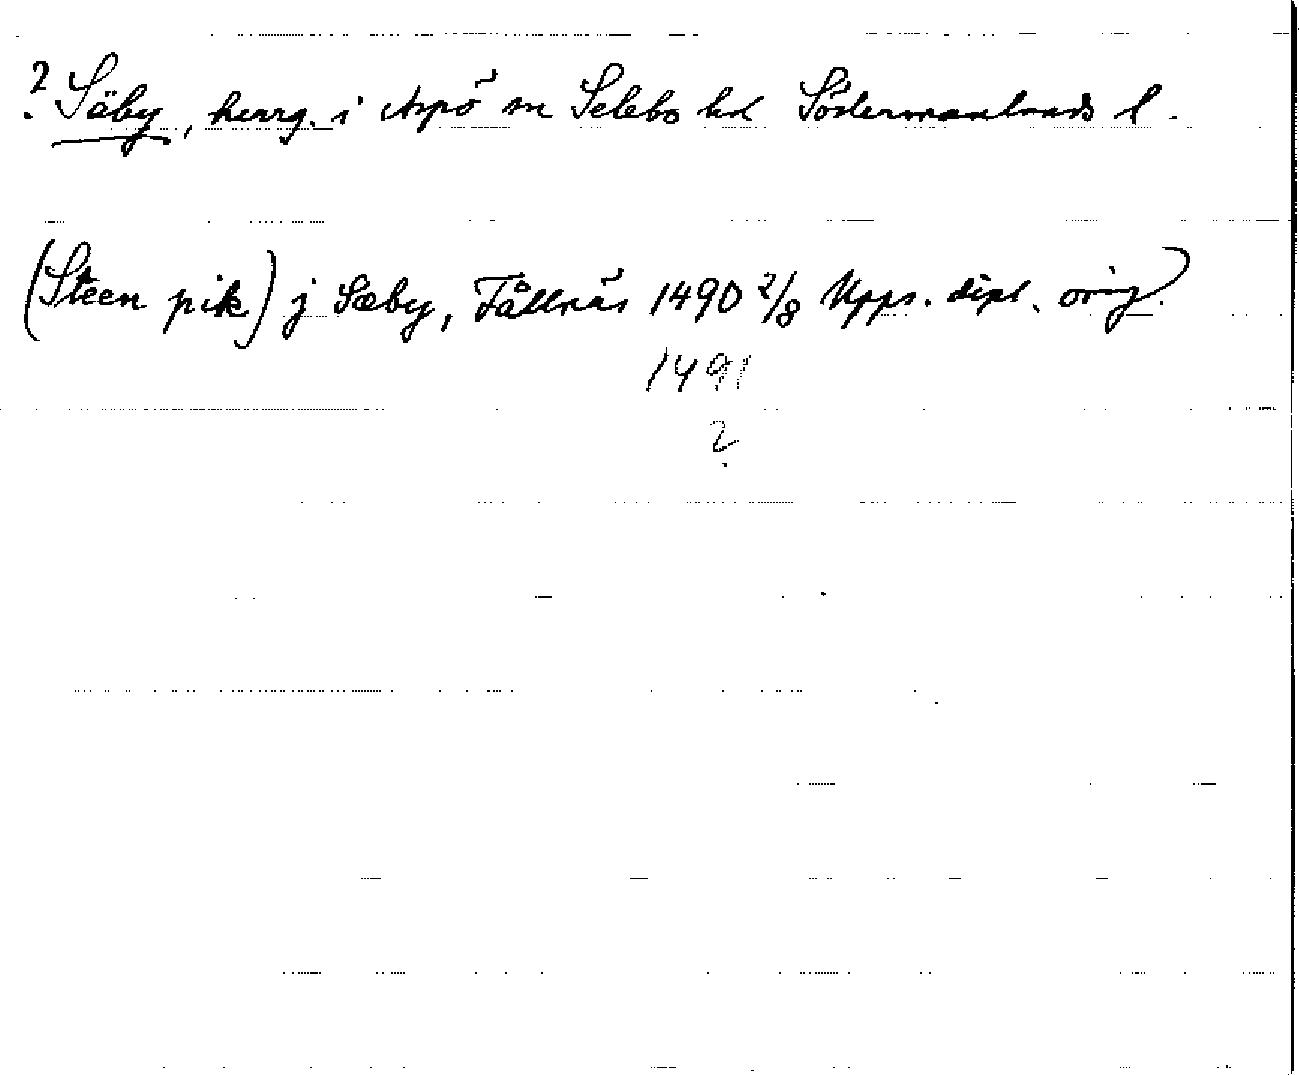 ? Säby, herrg. i Aspö sn Selebo hd Södermanlands l.
(Steen pik) j Sæby, Tållnäs 1490 2/8 Upps. dipl. orig.
1491
?